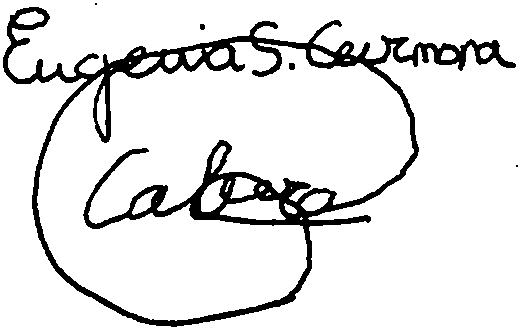 Eugenia S. Carmona
Cabeza